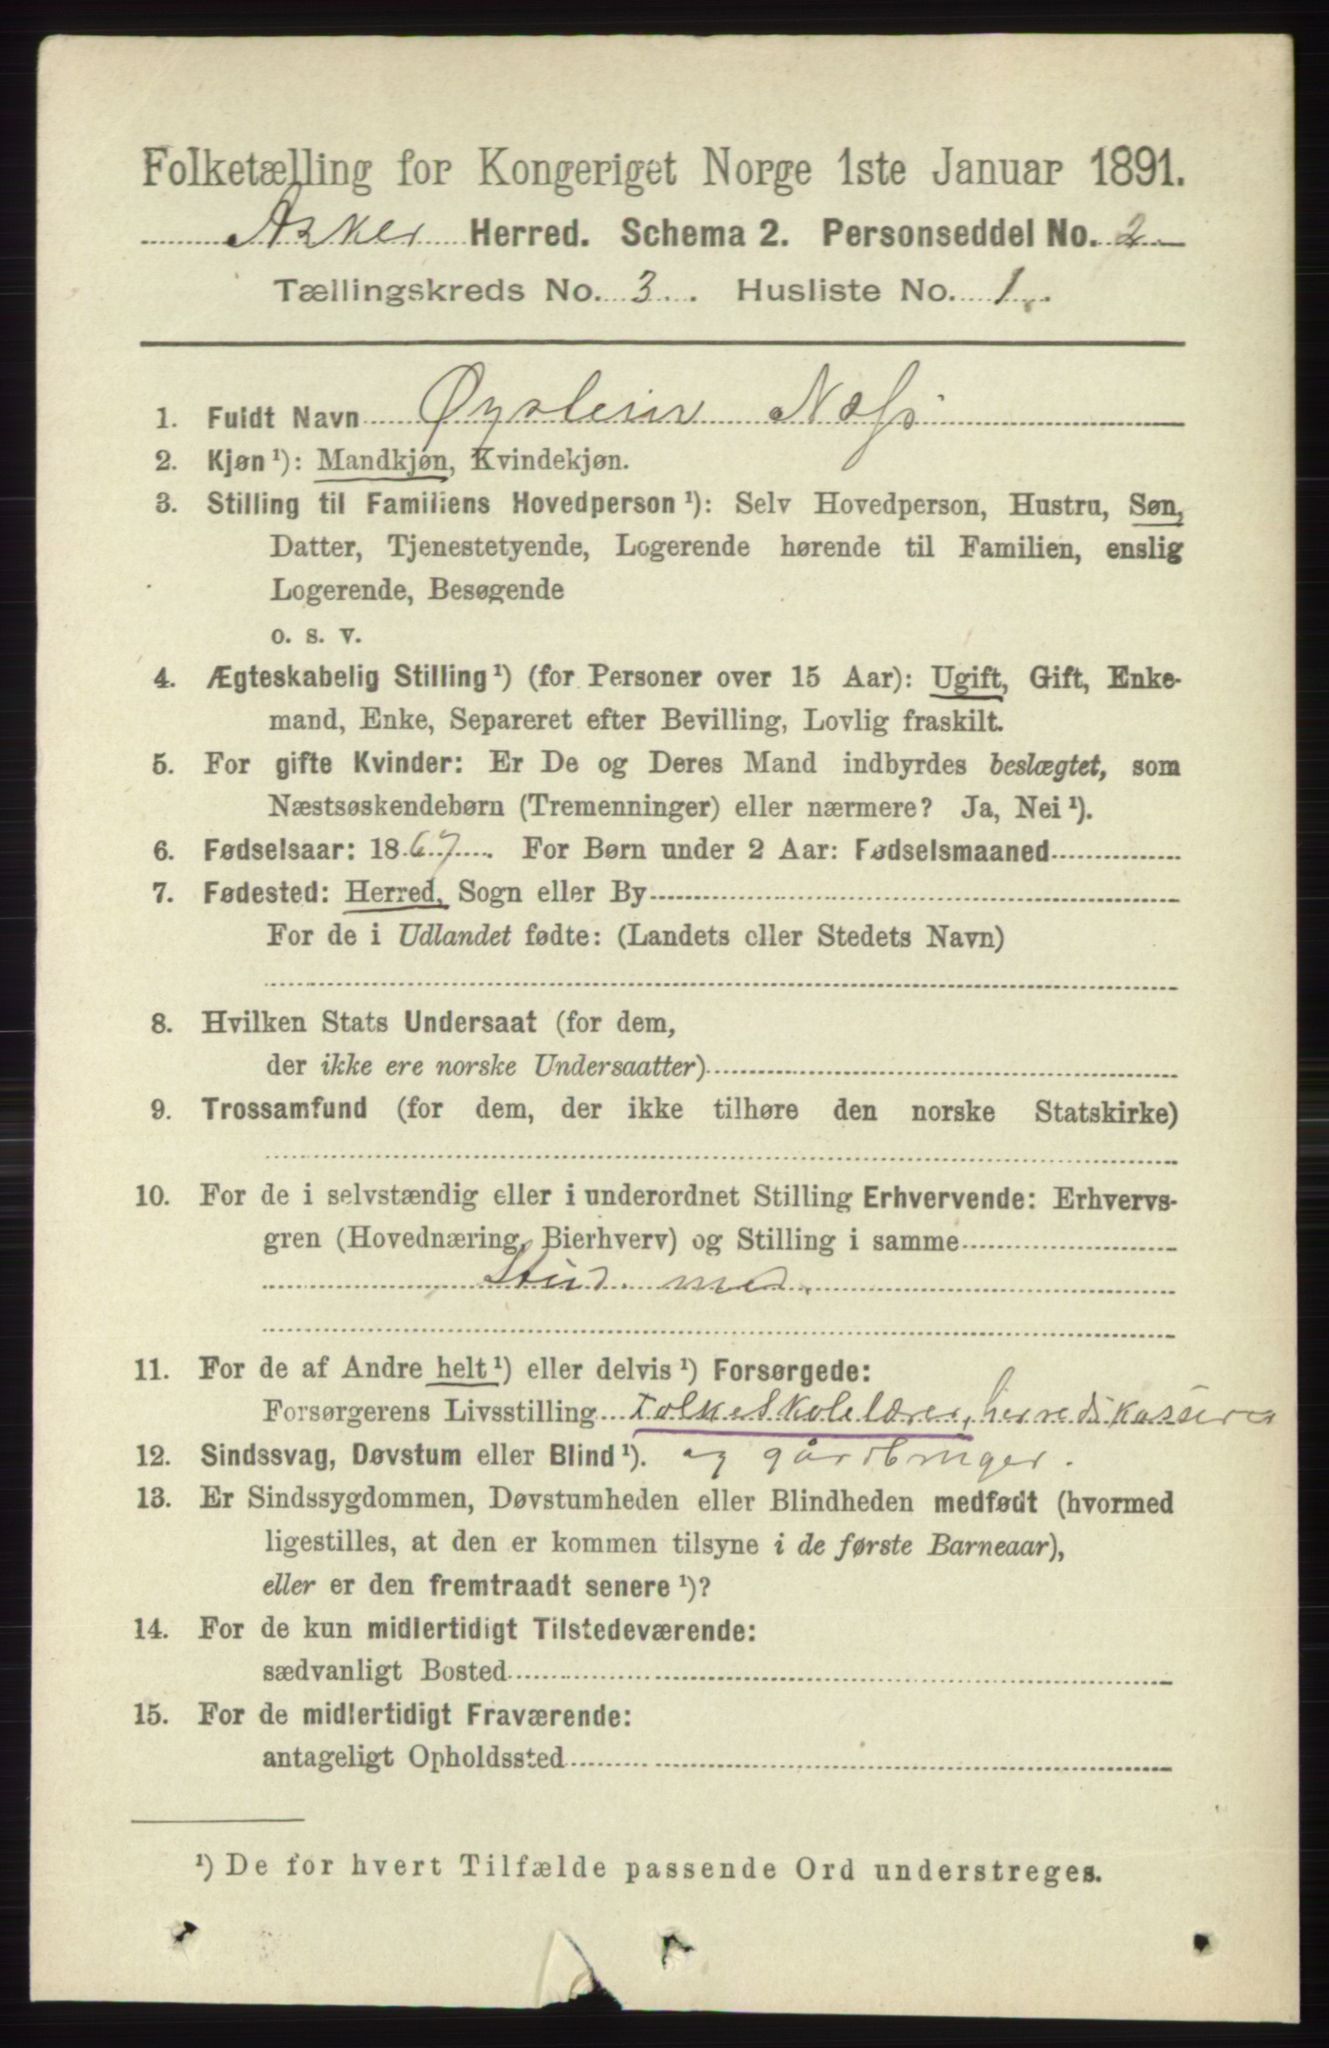 Folketælling for Kongeriget Norge 1ste Januar 1891.
Asker Herred. Schema 2. Personseddel No. 2
Tællingskreds No. 3. Husliste No. 1.
1. Fuldt Navn Øystein Næss
2. Kjøn¹): Mandkjøn, Kvindekjøn.
3. Stilling til Familiens Hovedperson¹): Selv Hovedperson, Hustru, Søn,
Datter, Tjenestetyende, Logerende hørende til Familien, enslig
Logerende, Besøgende
o. s. v.
4. Ægteskabelig Stilling¹) (for Personer over 15 Aar): Ugift, Gift, Enke-
mand, Enke, Separeret efter Bevilling, Lovlig fraskilt.
5. For gifte Kvinder: Er De og Deres Mand indbyrdes beslægtet, som
Næstsøskendebørn (Tremenninger) eller nærmere? Ja, Nei¹).
6. Fødselsaar: 1867. For Børn under 2 Aar: Fødselsmaaned
7. Fødested: Herred, Sogn eller By
For de i Udlandet fødte: (Landets eller Stedets Navn)
8. Hvilken Stats Undersaat (for dem,
der ikke ere norske Undersaatter)
9. Trossamfund (for dem, der ikke tilhøre den norske Statskirke)
10. For de i selvstændig eller i underordnet Stilling Erhvervende: Erhvervs-
gren (Hovednæring, Bierhverv) og Stilling i samme
Stud. med.
11. For de af Andre helt¹) eller delvis¹) Forsørgede:
Forsørgerens Livsstilling Folkeskolelærer, herredskasserer
12. Sindssvag, Døvstum eller Blind¹). og gårdbruger.
13. Er Sindssygdommen, Døvstumheden eller Blindheden medfødt (hvormed
ligestilles, at den er kommen tilsyne i de første Barneaar),
eller er den fremtraadt senere¹)?
14. For de kun midlertidigt Tilstedeværende:
sædvanligt Bosted
15. For de midlertidigt Fraværende:
antageligt Opholdssted
¹) De for hvert Tilfælde passende Ord understreges.